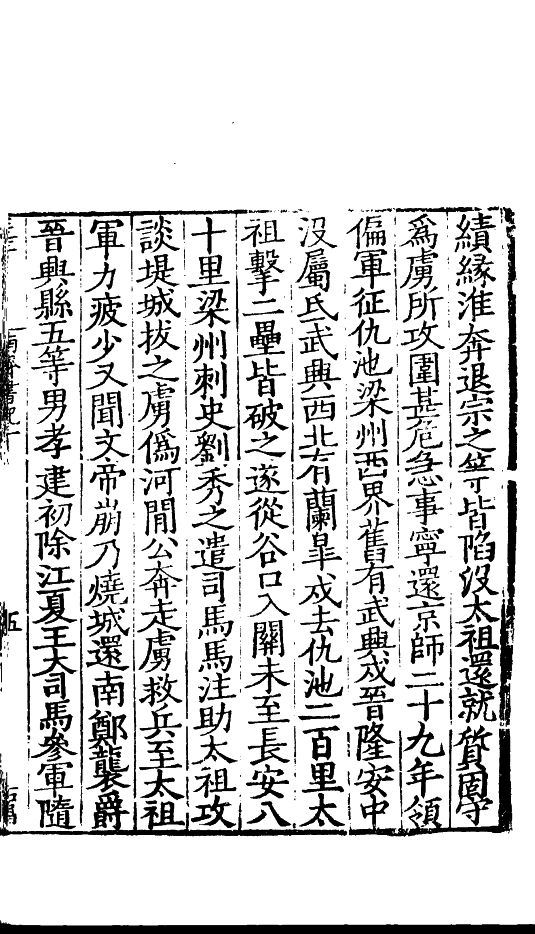 績緣淮奔退宗之等皆陷没太祖還就質固守
爲虜所攻圍甚危急事寧還京師二十九年領
偏軍征仇池梁州西界舊有武興戍晉隆安中
没屬氐武興西北有蘭皐戍去仇池二百里太
祖擊二壘皆破之遂從谷口入關未至長安八
十里梁州刺史劉秀之遣司馬馬注助太祖攻
談堤城拔之虜僞河閒公奔走虜救兵至太祖
軍力疲少又聞文帝崩乃燒城還南鄭襲爵
晉興縣五等男孝建初除江夏王大司馬參軍隨
五